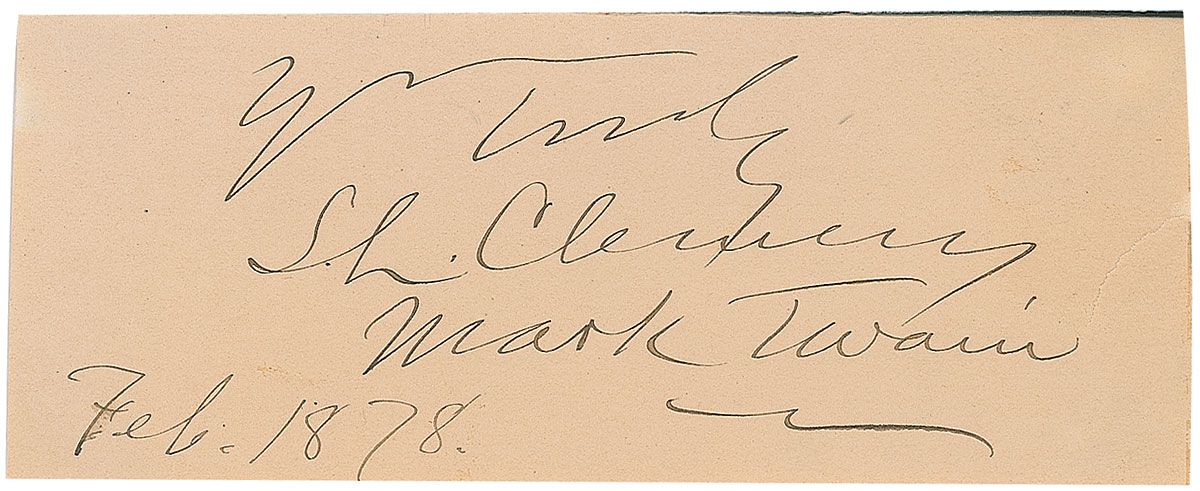 Yr Truly
S. L. Clemens
Mark Twain
Feb. 1878.